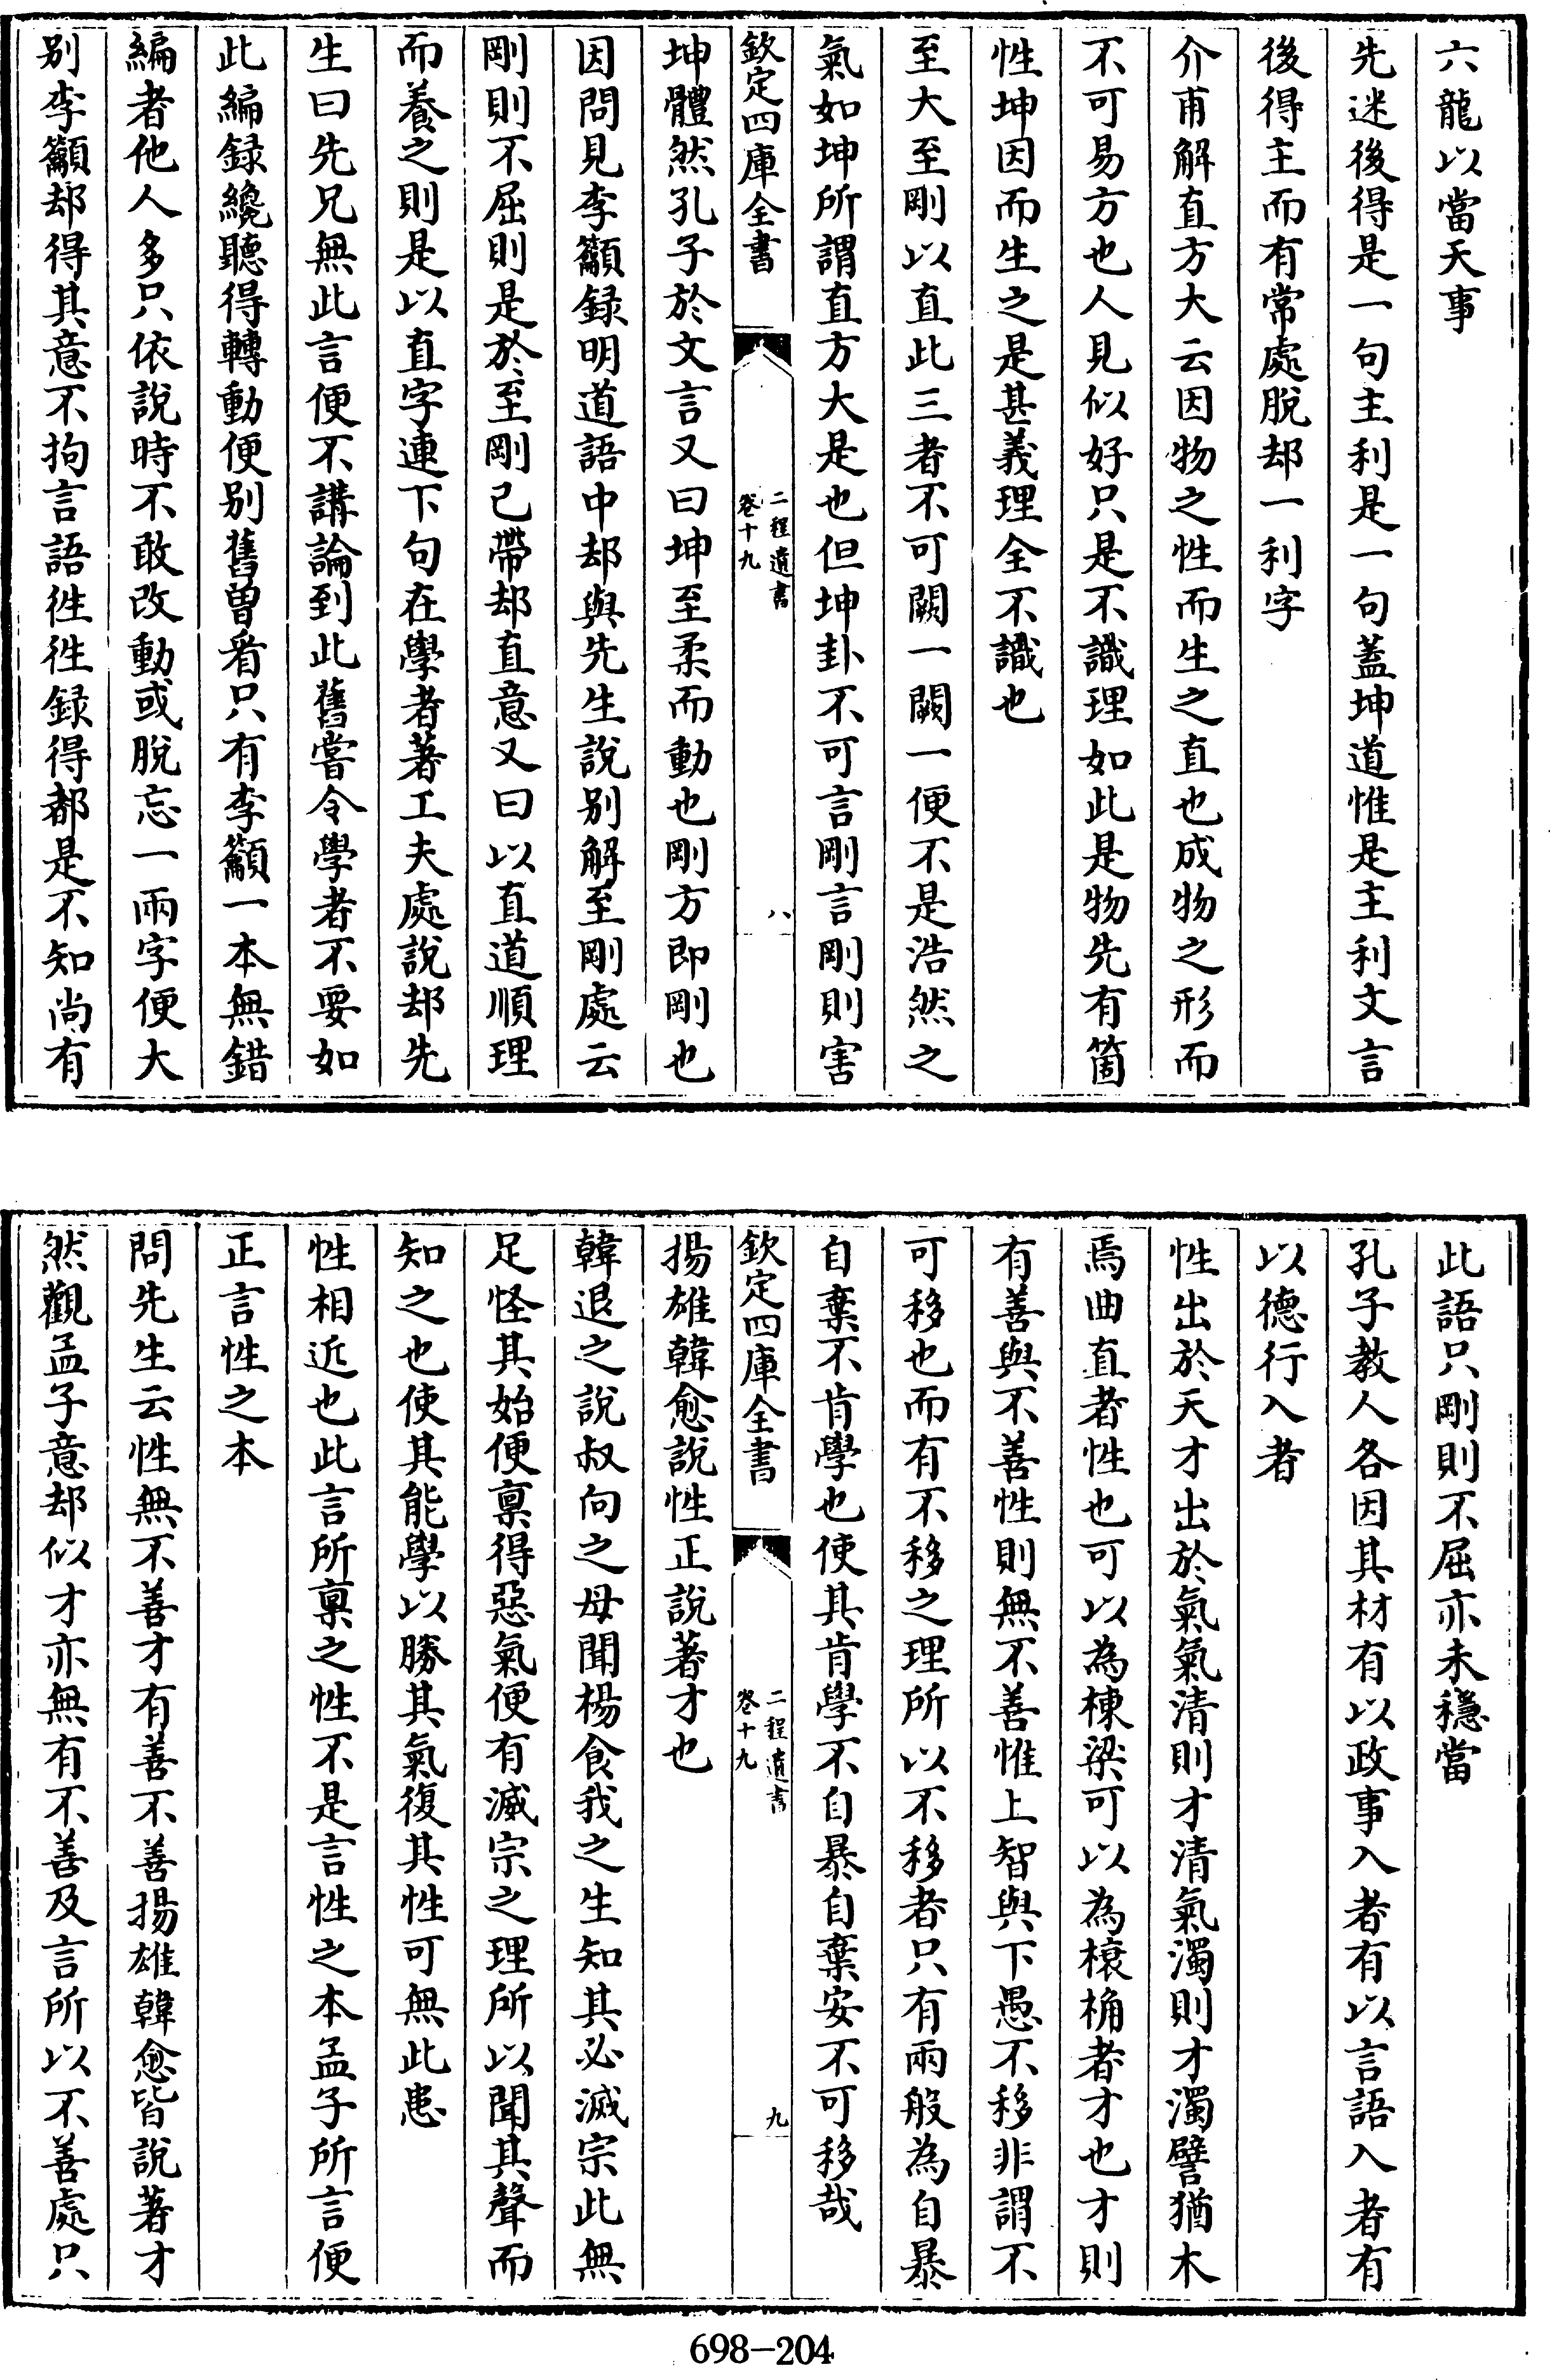 六龍以當天事
先迷後得是一句主利是一句蓋坤道惟是主利文言
後得主而有常處脫却一利字
介甫解直方大云因物之性而生之直也成物之形而
不可易方也人見似好只是不識理如此是物先有箇
性坤因而生之是甚義理全不識也
至大至剛以直此三者不可闕一闕一便不是浩然之
氣如坤所謂直方大是也但坤卦不可言剛言剛則害
欽定四庫全書
二程遺書
卷十九
八
坤體然孔子於文言又曰坤至柔而動也剛方即剛也
因問見李籲録明道語中却與先生說别解至剛處云
剛則不屈則是於至剛已帶却直意又曰以直道順理
而養之則是以直字連下句在學者著工夫處說却先
生曰先兄無此言便不講論到此舊嘗令學者不要如
此編録纔聽得轉動便别舊曾看只有李籲一本無錯
編者他人多只依說時不敢改動或脫忘一兩字便大
别李籲却得其意不拘言語徃徃録得都是不知尚有
此語只剛則不屈亦未穩當
孔子教人各因其材有以政事入者有以言語入者有
以德行入者
性出於天才出於氣氣清則才清氣濁則才濁譬猶木
焉曲直者性也可以為棟梁可以為榱桷者才也才則
有善與不善性則無不善惟上智與下愚不移非謂不
可移也而有不移之理所以不移者只有兩般為自暴
自棄不肯學也使其肯學不自暴自棄安不可移哉
欽定四庫全書
二程遺書
卷十九
九
揚雄韓愈說性正說著才也
韓退之說叔向之母聞楊食我之生知其必滅宗此無
足怪其始便稟得惡氣便有滅宗之理所以聞其聲而
知之也使其能學以勝其氣復其性可無此患
性相近也此言所稟之性不是言性之本孟子所言便
正言性之本
問先生云性無不善才有善不善揚雄韓愈皆說著才
然觀孟子意却似才亦無有不善及言所以不善處只
698-204